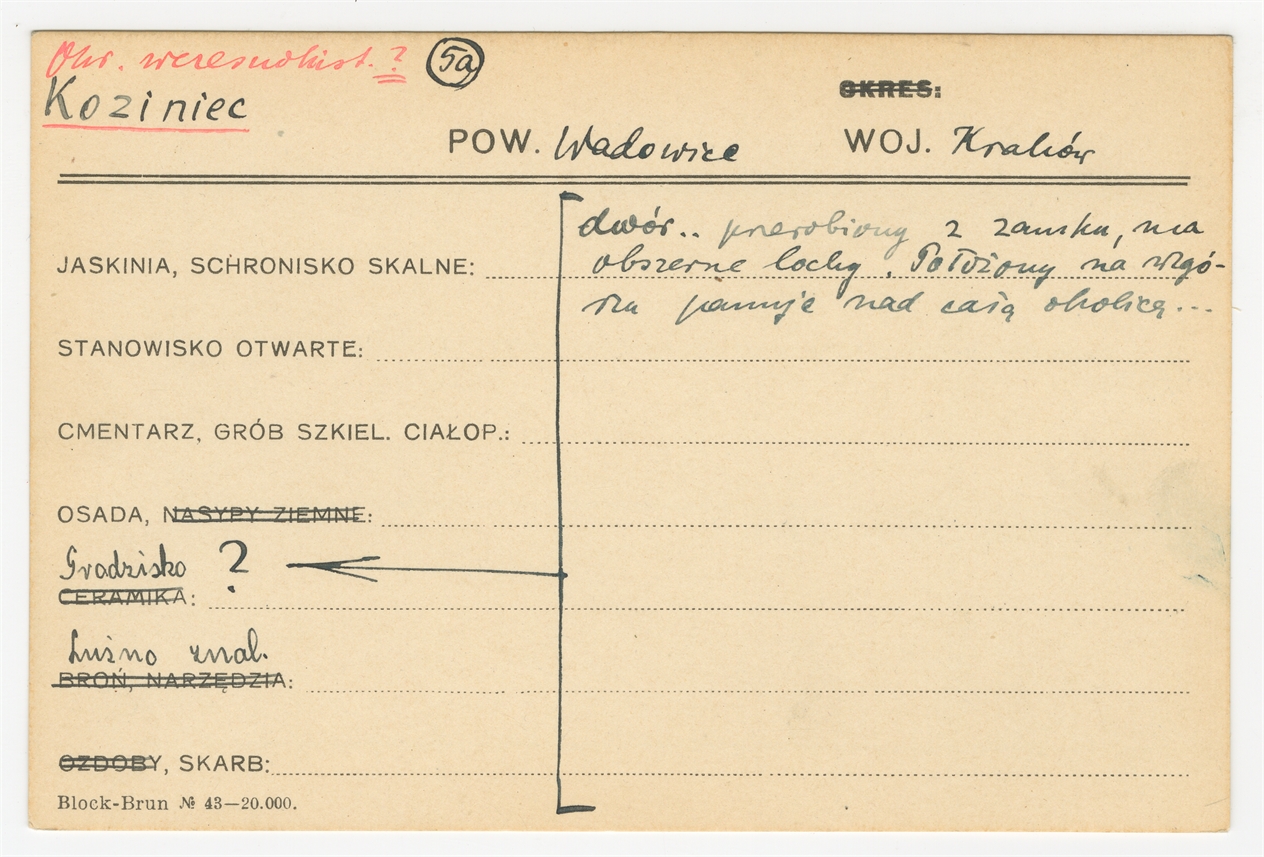 Okr. wczesnohist. ? 5a
Koziniec
OKRES:
POW. Wadowice WOJ. Kraków
dwór.. przerobiony z zamku, ma
obszerne lochy. Położony na wzgó-
rzu panuje nad całą okolicą...
JASKINIA, SCHRONISKO SKALNE:
STANOWISKO OTWARTE:
CMENTARZ, GRÓB SZKIEL. CIAŁOP.:
OSADA, NASYPY ZIEMNE:
Grodzisko ?
CERAMIKA:
Luźno znal.
BROŃ, NARZĘDZIA:
OZDOBY, SKARB:
Block-Brun № 43—20.000.